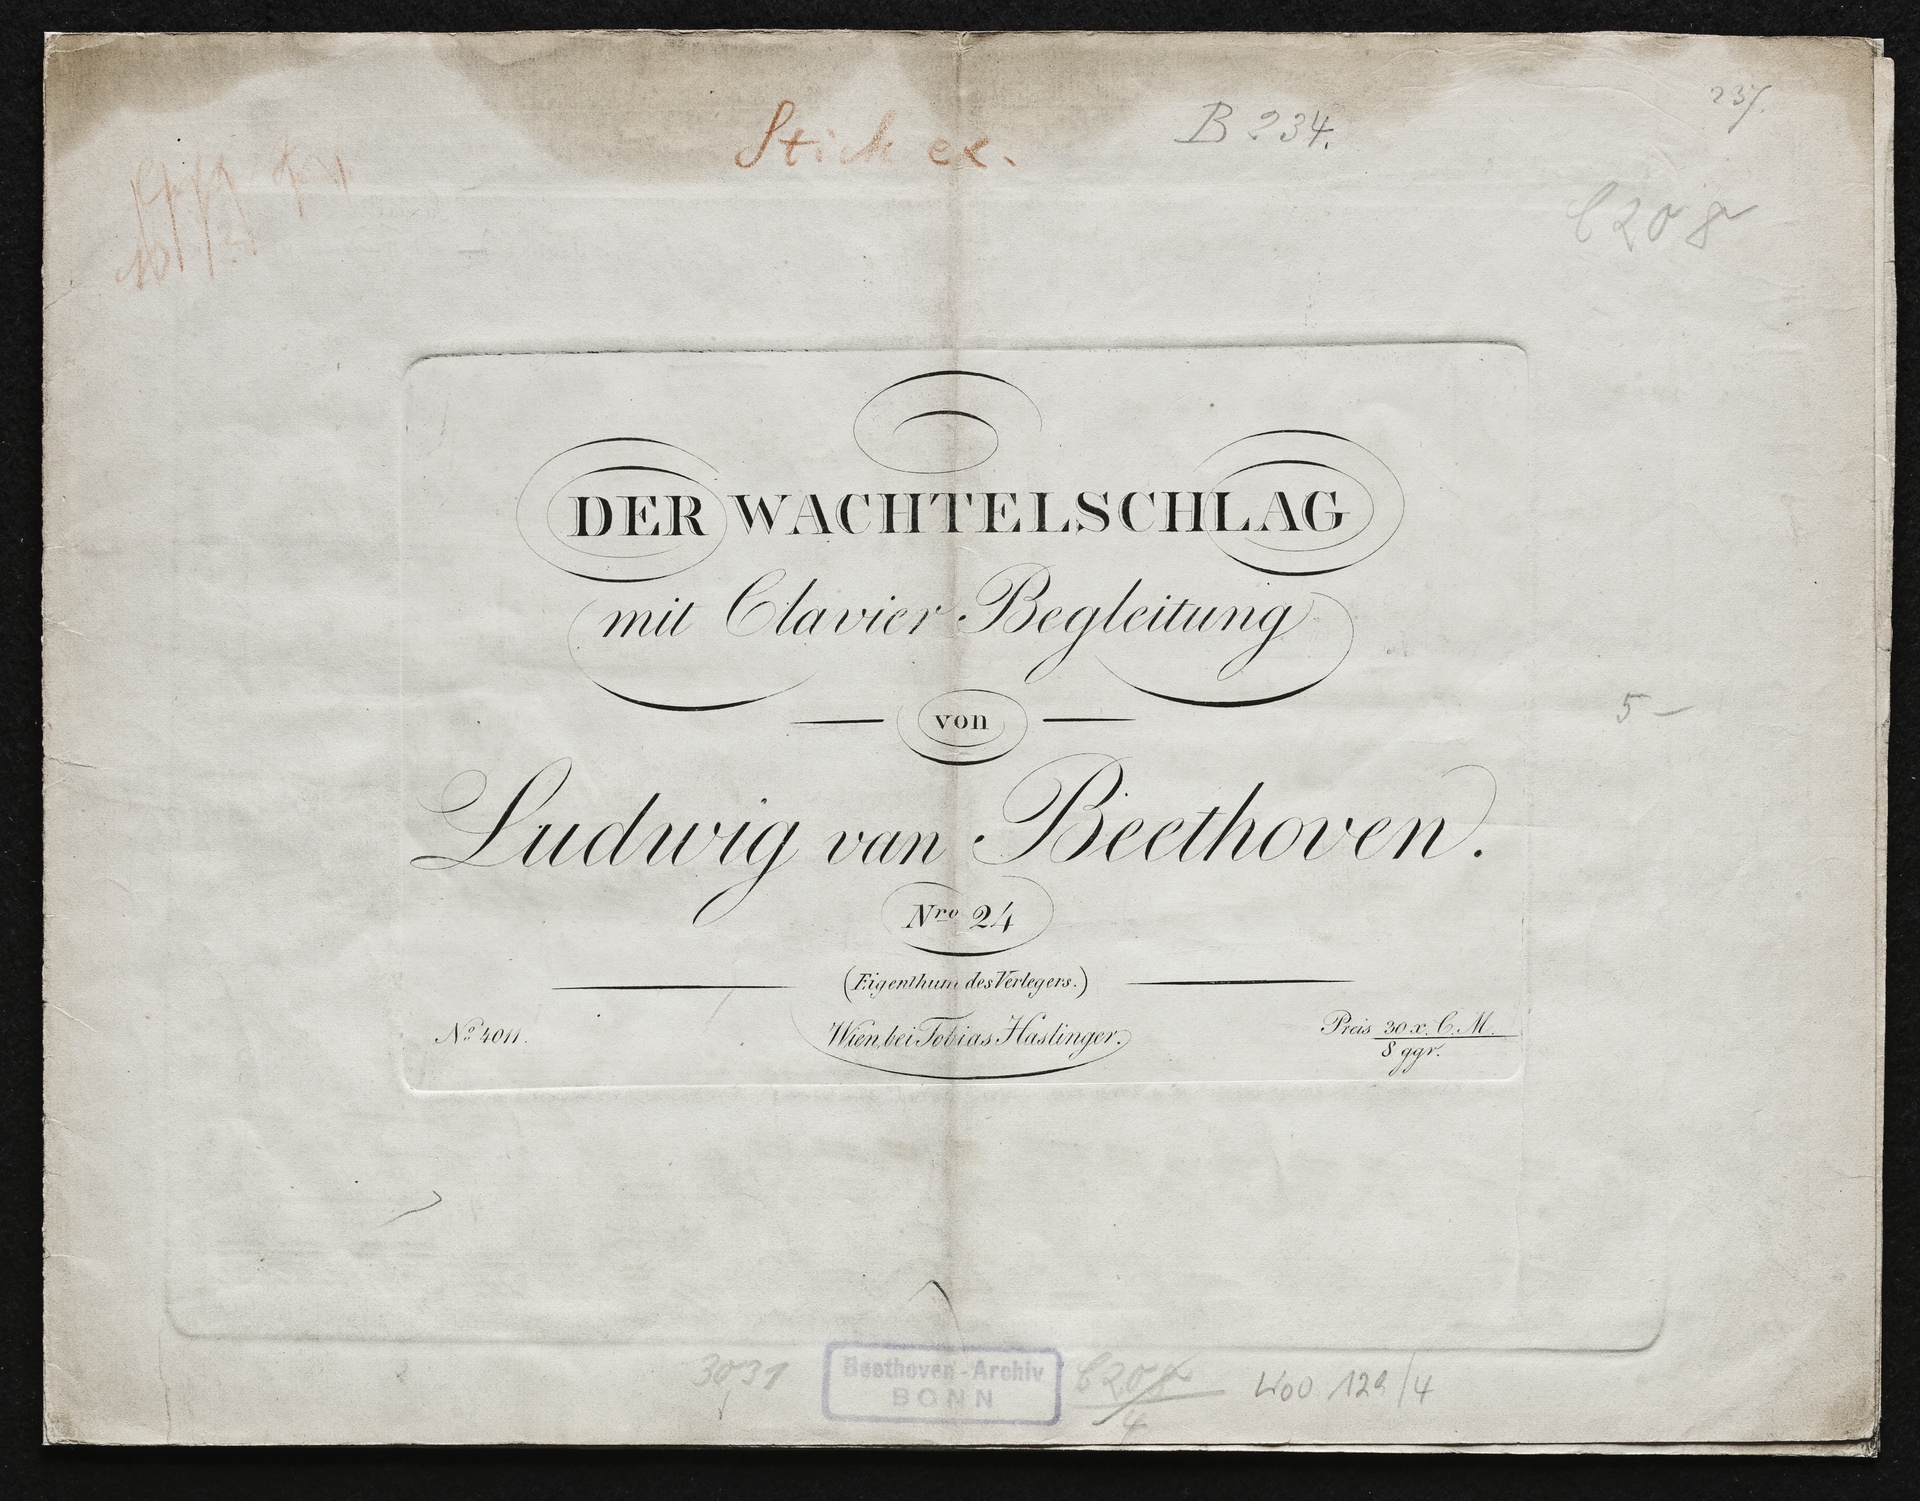 237.
Stich ex.
B 234.
C 20 8
DER WACHTELSCHLAG
mit Clavier-Begleitung
von
5 –
Ludwig van Beethoven.
Nro 24
(Eigenthum des Verlegers.)
No 4011.
Wien, bei Tobias Haslinger.
Preis 30 x. C. M.
8 ggr.
3031
Beethoven-Archiv
BONN
WoO 129/4